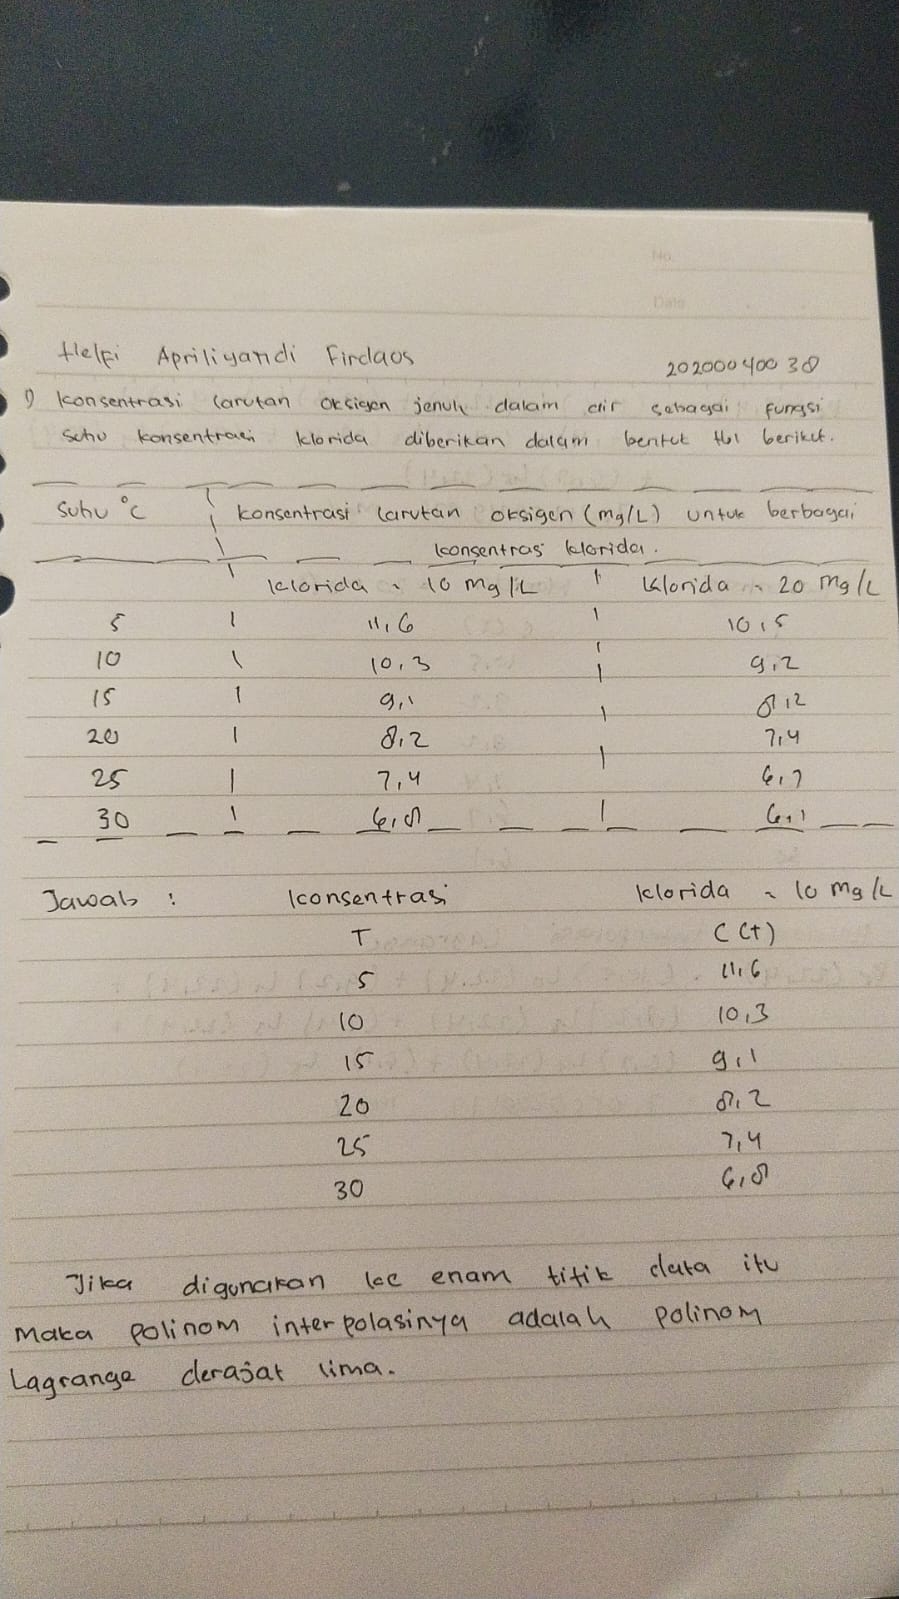 No.
Date
Helfi Apriliyandi Firdaos 20200040038
1) Konsentrasi larutan oksigen jenuh dalam air sebagai fungsi
suhu konsentrasi klorida diberikan dalam bentuk tbl berikut.
Suhu °C konsentrasi larutan oksigen (mg/L) untuk berbagai
konsentrasi klorida.
klorida ~ 10 mg/L klorida ~ 20 mg/L
5 11,6 10,5
10 10,3 9,2
15 9,1 8,2
20 8,2 7,4
25 7,4 6,7
30 6,8 6,1
Jawab : konsentrasi klorida ~ 10 mg/L
T C (t)
5 11,6
10 10,3
15 9,1
20 8,2
25 7,4
30 6,8
Jika digunakan ke enam titik data itu
Maka polinom interpolasinya adalah polinom
Lagrange derajat lima.